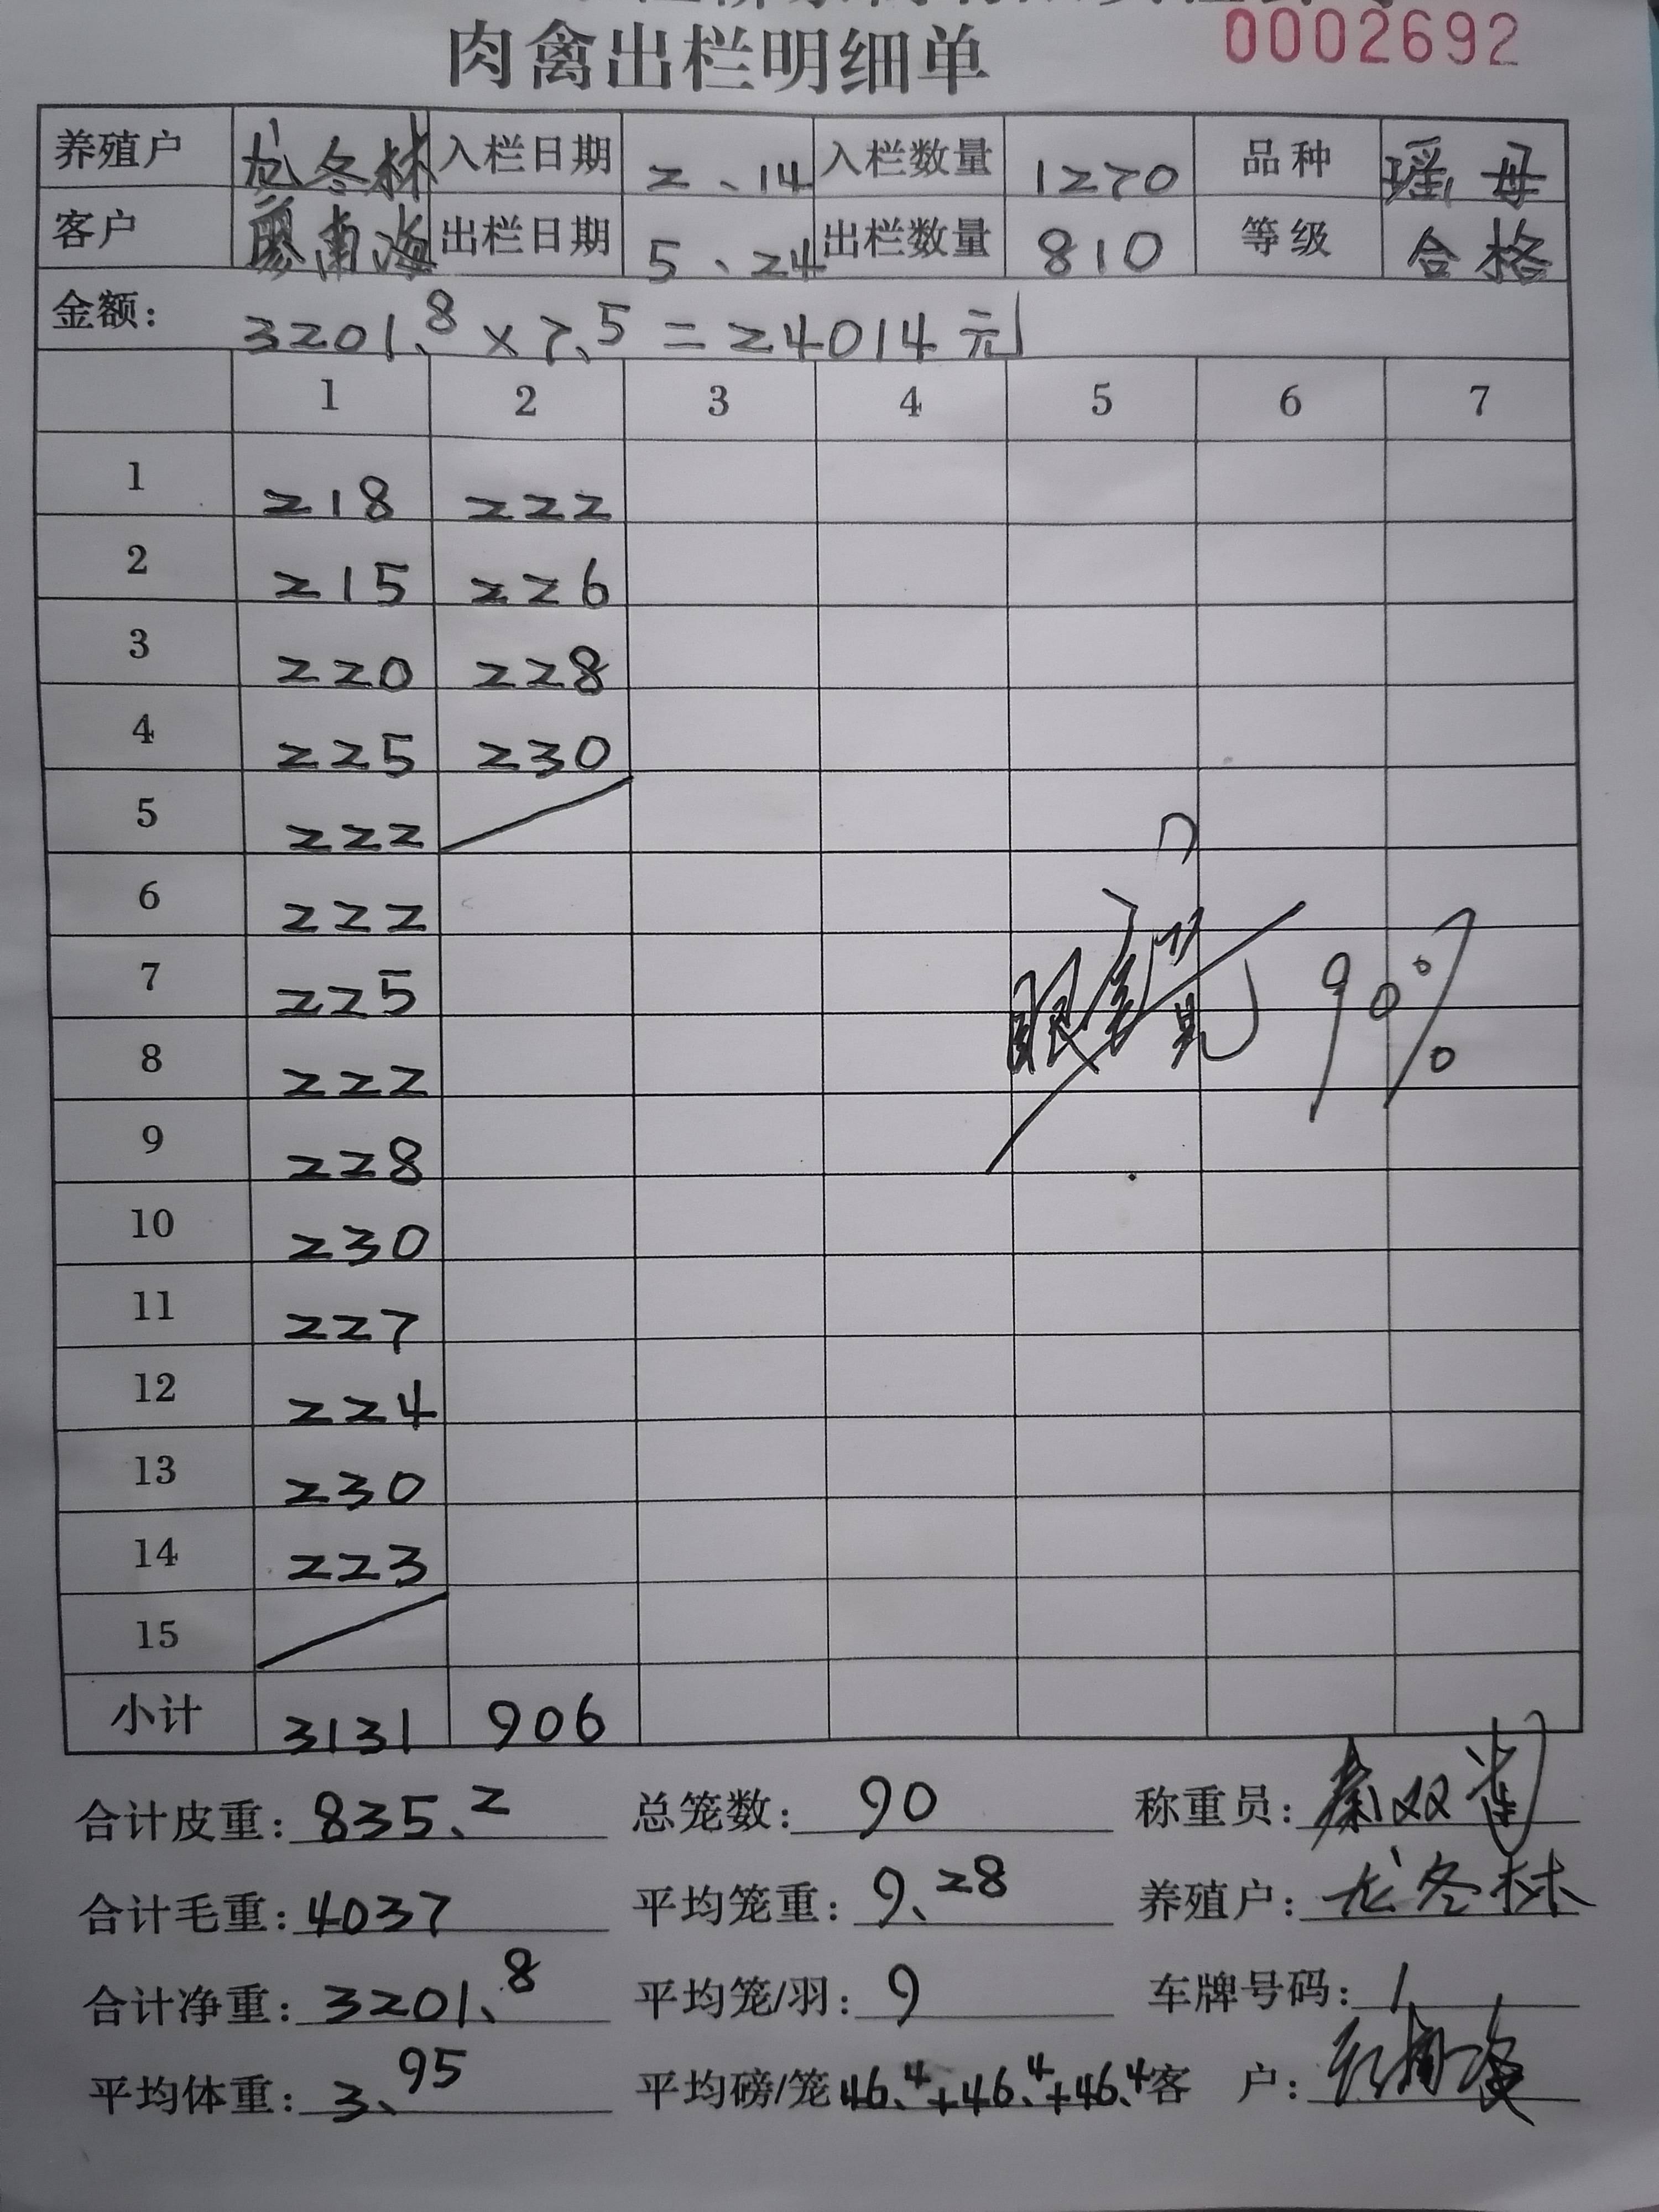 肉禽出栏明细单 0002692
养殖户 龙冬林 入栏日期 2.14 入栏数量 1270 品种 瑶母
客户 廖南海 出栏日期 5.24 出栏数量 810 等级 合格
金额: 3201.8 × 7.5 = 24014元
1 2 3 4 5 6 7
1 218 222
2 215 226
3 220 228
4 225 230
5 222
6 222
7 225
8 222
9 228
10 230
11 227
12 224
13 230
14 223
15
90%
小计 3131 906
合计皮重: 835.2 总笼数: 90 称重员: 秦双
合计毛重: 4037 平均笼重: 9.28 养殖户: 龙冬林
合计净重: 3201.8 平均笼/羽: 9 车牌号码: /
平均体重: 3.95 平均磅/笼 46.4+46.4+46.4 客 户: